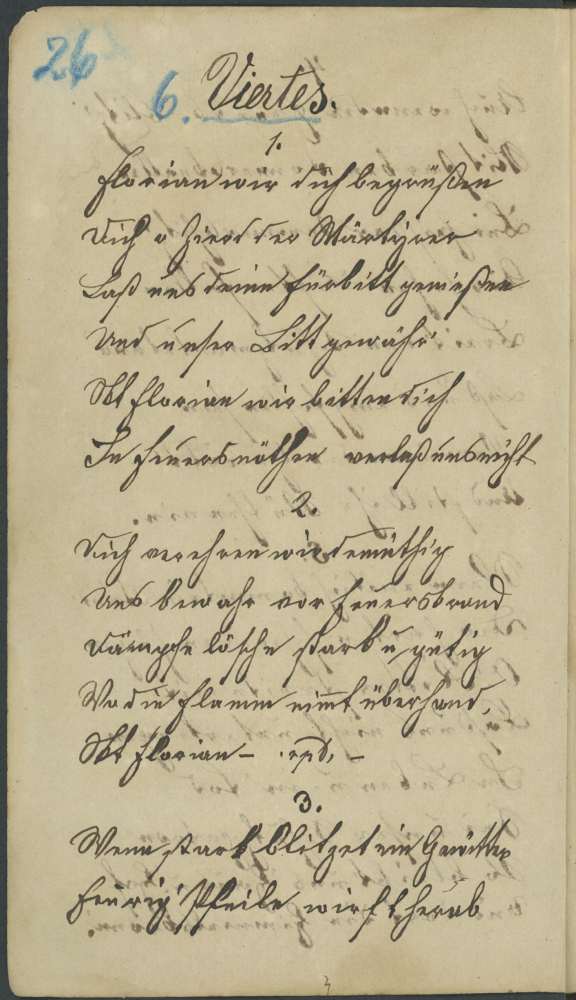 26
6. Viertes.
1.
Florian wir dich begrüßen
Dich o Zierd der Märtyrer
Laß uns deine Fürbitt genießen
Und unser Bitt gewähr
Skt Florian wir bitten dich
In Feuersnöthen verlaß uns nicht
2.
Dich verehren wir demüthig
Uns bewahr vor Feuersbrand
Dämpfe lösche stark u gütig
Wo die Flamm nimt überhand,
Skt Florian –
3.
Wenn stark blitzet ein Gewitter
Feurig Pfeile wirft herab